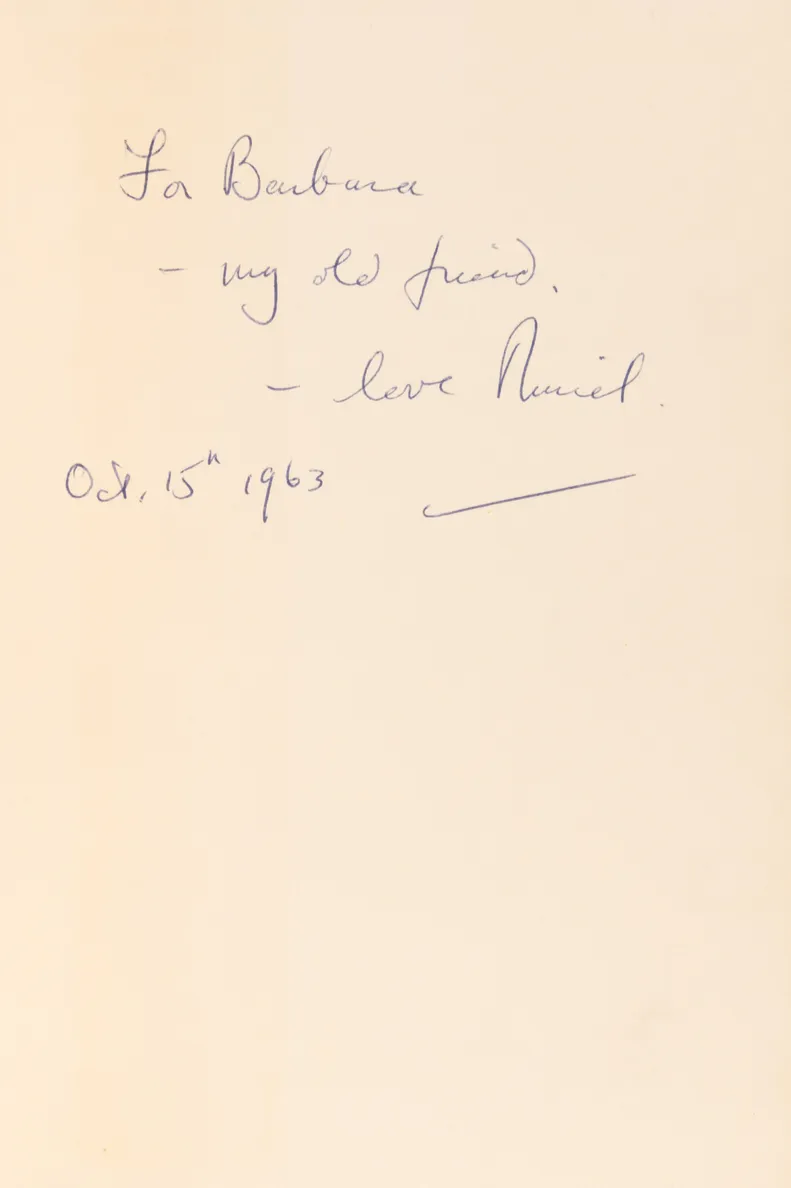 For Barbara
- my old friend,
- love Muriel.
Oct. 15th 1963